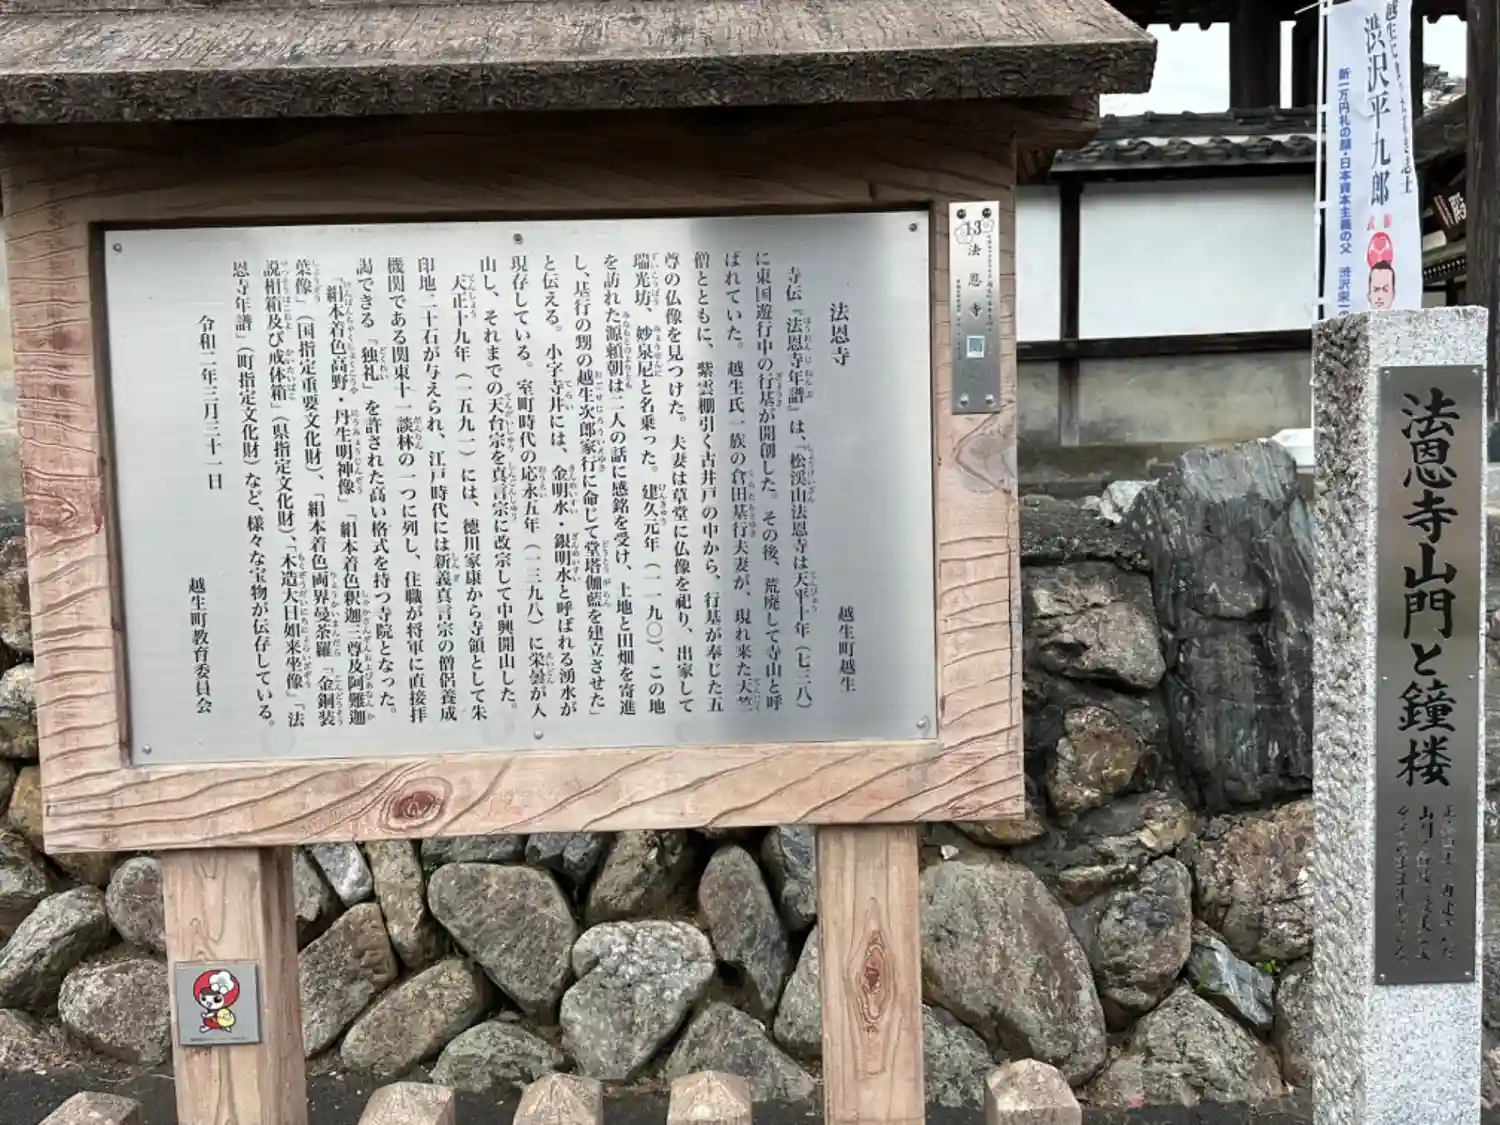 法恩寺
越生町越生
寺伝『法恩寺年譜』は、「松渓山法恩寺は天平十年（七三八）
に東国遊行中の行基が開創した。その後、荒廃して寺山と呼
ばれていた。越生氏一族の倉田基行夫妻が、現れ来た天竺
僧とともに、紫雲棚引く古井戸の中から、行基が奉じた五
尊の仏像を見つけた。夫妻は草堂に仏像を祀り、出家して
瑞光坊、妙泉尼と名乗った。建久元年（一一九〇）、この地
を訪れた源頼朝は二人の話に感銘を受け、土地と田畑を寄進
し、基行の甥の越生次郎家行に命じて堂塔伽藍を建立させた」
と伝える。小字寺井には、金明水・銀明水と呼ばれる湧水が
現存している。室町時代の応永五年（一三九八）に栄曇が入
山し、それまでの天台宗を真言宗に改宗して中興開山した。
天正十九年（一五九一）には、徳川家康から寺領として朱
印地二十石が与えられ、江戸時代には新義真言宗の僧侶養成
機関である関東十一談林の一つに列し、住職が将軍に直接拝
謁できる「独礼」を許された高い格式を持つ寺院となった。
『絹本着色高野・丹生明神像』『絹本着色釈迦三尊及阿難迦
葉像』（国指定重要文化財）、『絹本着色両界曼荼羅』『金銅装
説相箱及び戒体箱』（県指定文化財）、『木造大日如来坐像』『法
恩寺年譜』（町指定文化財）など、様々な宝物が伝存している。
令和二年三月三十一日
越生町教育委員会
13
法恩寺
渋沢平九郎
新一万円札の顔・日本資本主義の父 渋沢栄一
法恩寺山門と鐘楼